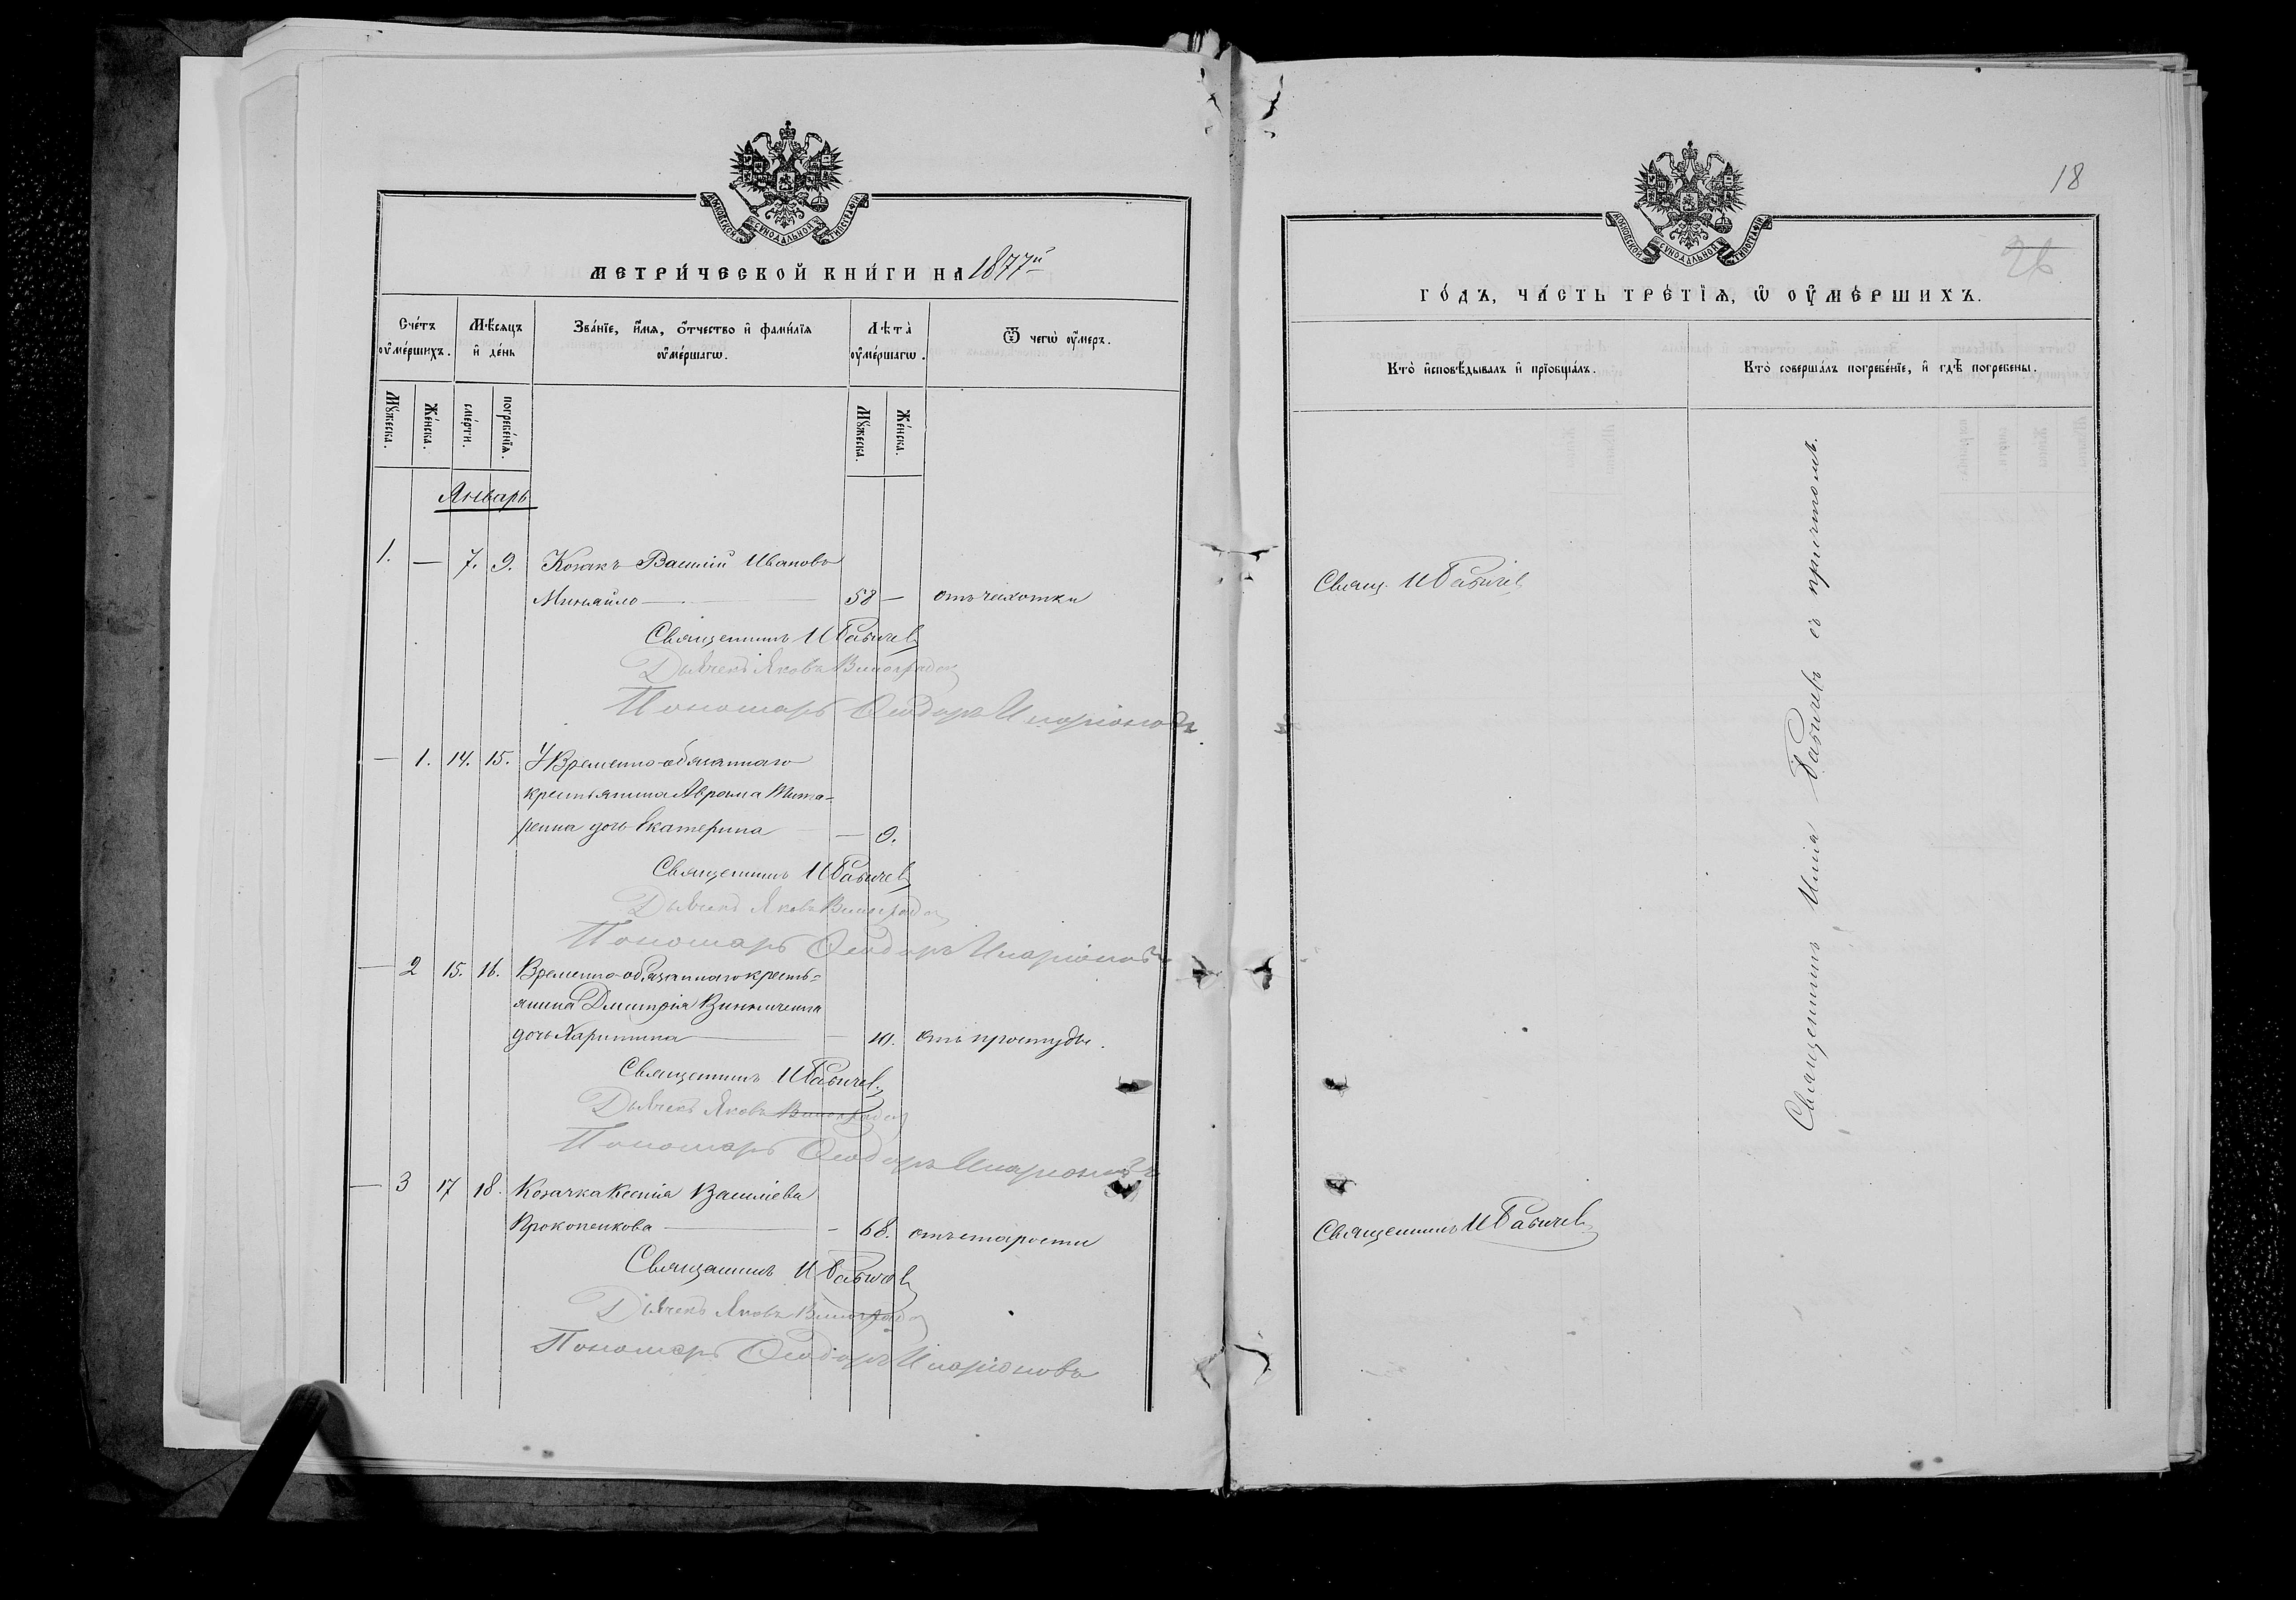 МОСКОВСКОЙ СѴНОДАЛЬНОЙ ТИПОГРАФІИ
МЕТРИ́ЧЕСКОЙ КНИ́ГИ НА 1877й
Сче́тъ ѹ҆ме́ршихъ.
Мѣ́сяцъ и҆ де́нь
Зва́нїе, и҆́мя, ѻ҆́тчество и҆ фами́лїя ѹ҆ме́ршагѡ.
Лѣта̀ ѹ҆ме́ршагѡ.
Ѿ чегѡ̀ ѹ҆́меръ.
Мꙋ́жеска.
Же́нска.
сме́рти.
погребе́нїя.
Мꙋ́жеска.
Же́нска.
Январь
1. — 7. 9. Козакъ Василій Ивановъ
Михайло — 58 — отъ чахотки
Священникъ И Бабичев
Дьячекъ Яковъ Виноградов
Пономарь Ѳеодоръ Иларіоновъ
— 1. 14. 15. У Временно-обязаннаго
крестьянина Аврама Тита-
ренка дочь Екатерина — 9.
Священникъ И Бабичев
Дьячекъ Яковъ Виноградов
Пономарь Ѳеодоръ Иларіоновъ
— 2 15. 16. Временно-обязаннаго кресть-
янина Димитрія Винниченка
дочь Харитина — 10. отъ простуды.
Священникъ И Бабичев
Дьячекъ Яковъ Виноградов
Пономарь Ѳеодоръ Иларіоновъ
— 3 17 18. Козачка Ксенія Василіева
Прокопенкова — 68. отъ старости
Священникъ И Бабичев
Дьячекъ Яковъ Виноградов
Пономарь Ѳеодоръ Иларіоновъ
18
26
МОСКОВСКОЙ СѴНОДАЛЬНОЙ ТИПОГРАФІИ
ГО́ДЪ, ЧА́СТЬ ТРЕ́ТЇЯ, Ѡ҆ ОУ҆МЕ́РШИХЪ.
Кто̀ и҆сповѣ́дывалъ и҆ прїобща́лъ.
Кто̀ соверша́лъ погребе́нїе, и҆ гдѣ̀ погребены.
Свящ. И Бабичев
Священникъ Илія Бабичевъ съ причтомъ.
Священникъ И Бабичев